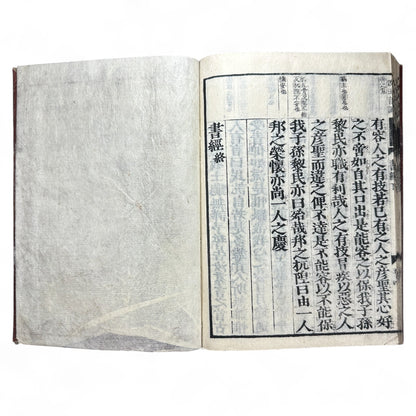 有容人之有技若己有之人之彥聖其心好
之不啻如自其口出是能容之以保我子孫
黎民亦職有利哉人之有技冒疾以惡之人
之彥聖而違之俾不達是不能容以不能保
我子孫黎民亦曰殆哉邦之杌隉曰由一人
邦之榮懷亦尚一人之慶
書經終